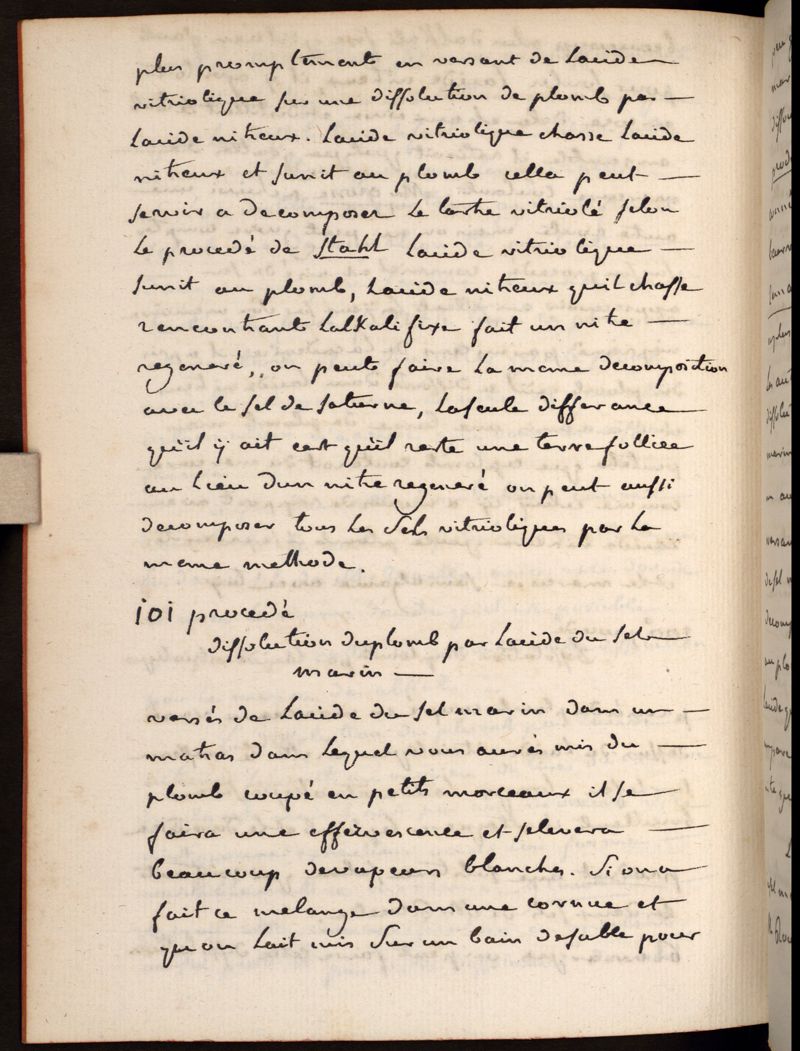 plus promptement en versant de Lacide
vitriolique sur une dissolution de plomb par
Lacide nitreux. Lacide vitriolique chasse Lacide
nitreux et sunit au plomb cella peut
servir a decomposer Le tartre vitriolé selon
Le procedé de Stahl Lacide vitriolique
sunit au plomb, Lacide nitreux quil chasse
rencontrant Lalkali fixe fait un nitre
regeneré, on peut faire La meme decomposition
avec le sel de saturne, Laseule differance
quil ÿ ait cest quil reste une terre folliée
au Lieu dun nitre regeneré on peut aussi
decomposer tous Les Sels vitrioliques par La
meme methode.
101 procedé
dissolution duplomb par Lacide du Sel
marin
versés de Lacide du sel marin dans un
matras dans Lequel vous aurés mis du
plomb coupé en petits morceaux il se
faira une effervescence et selevera
beaucoup devapeurs blanches. Si on a
fait ce melange dans une cornue et
quon Lait mis Sur un bain desable pour